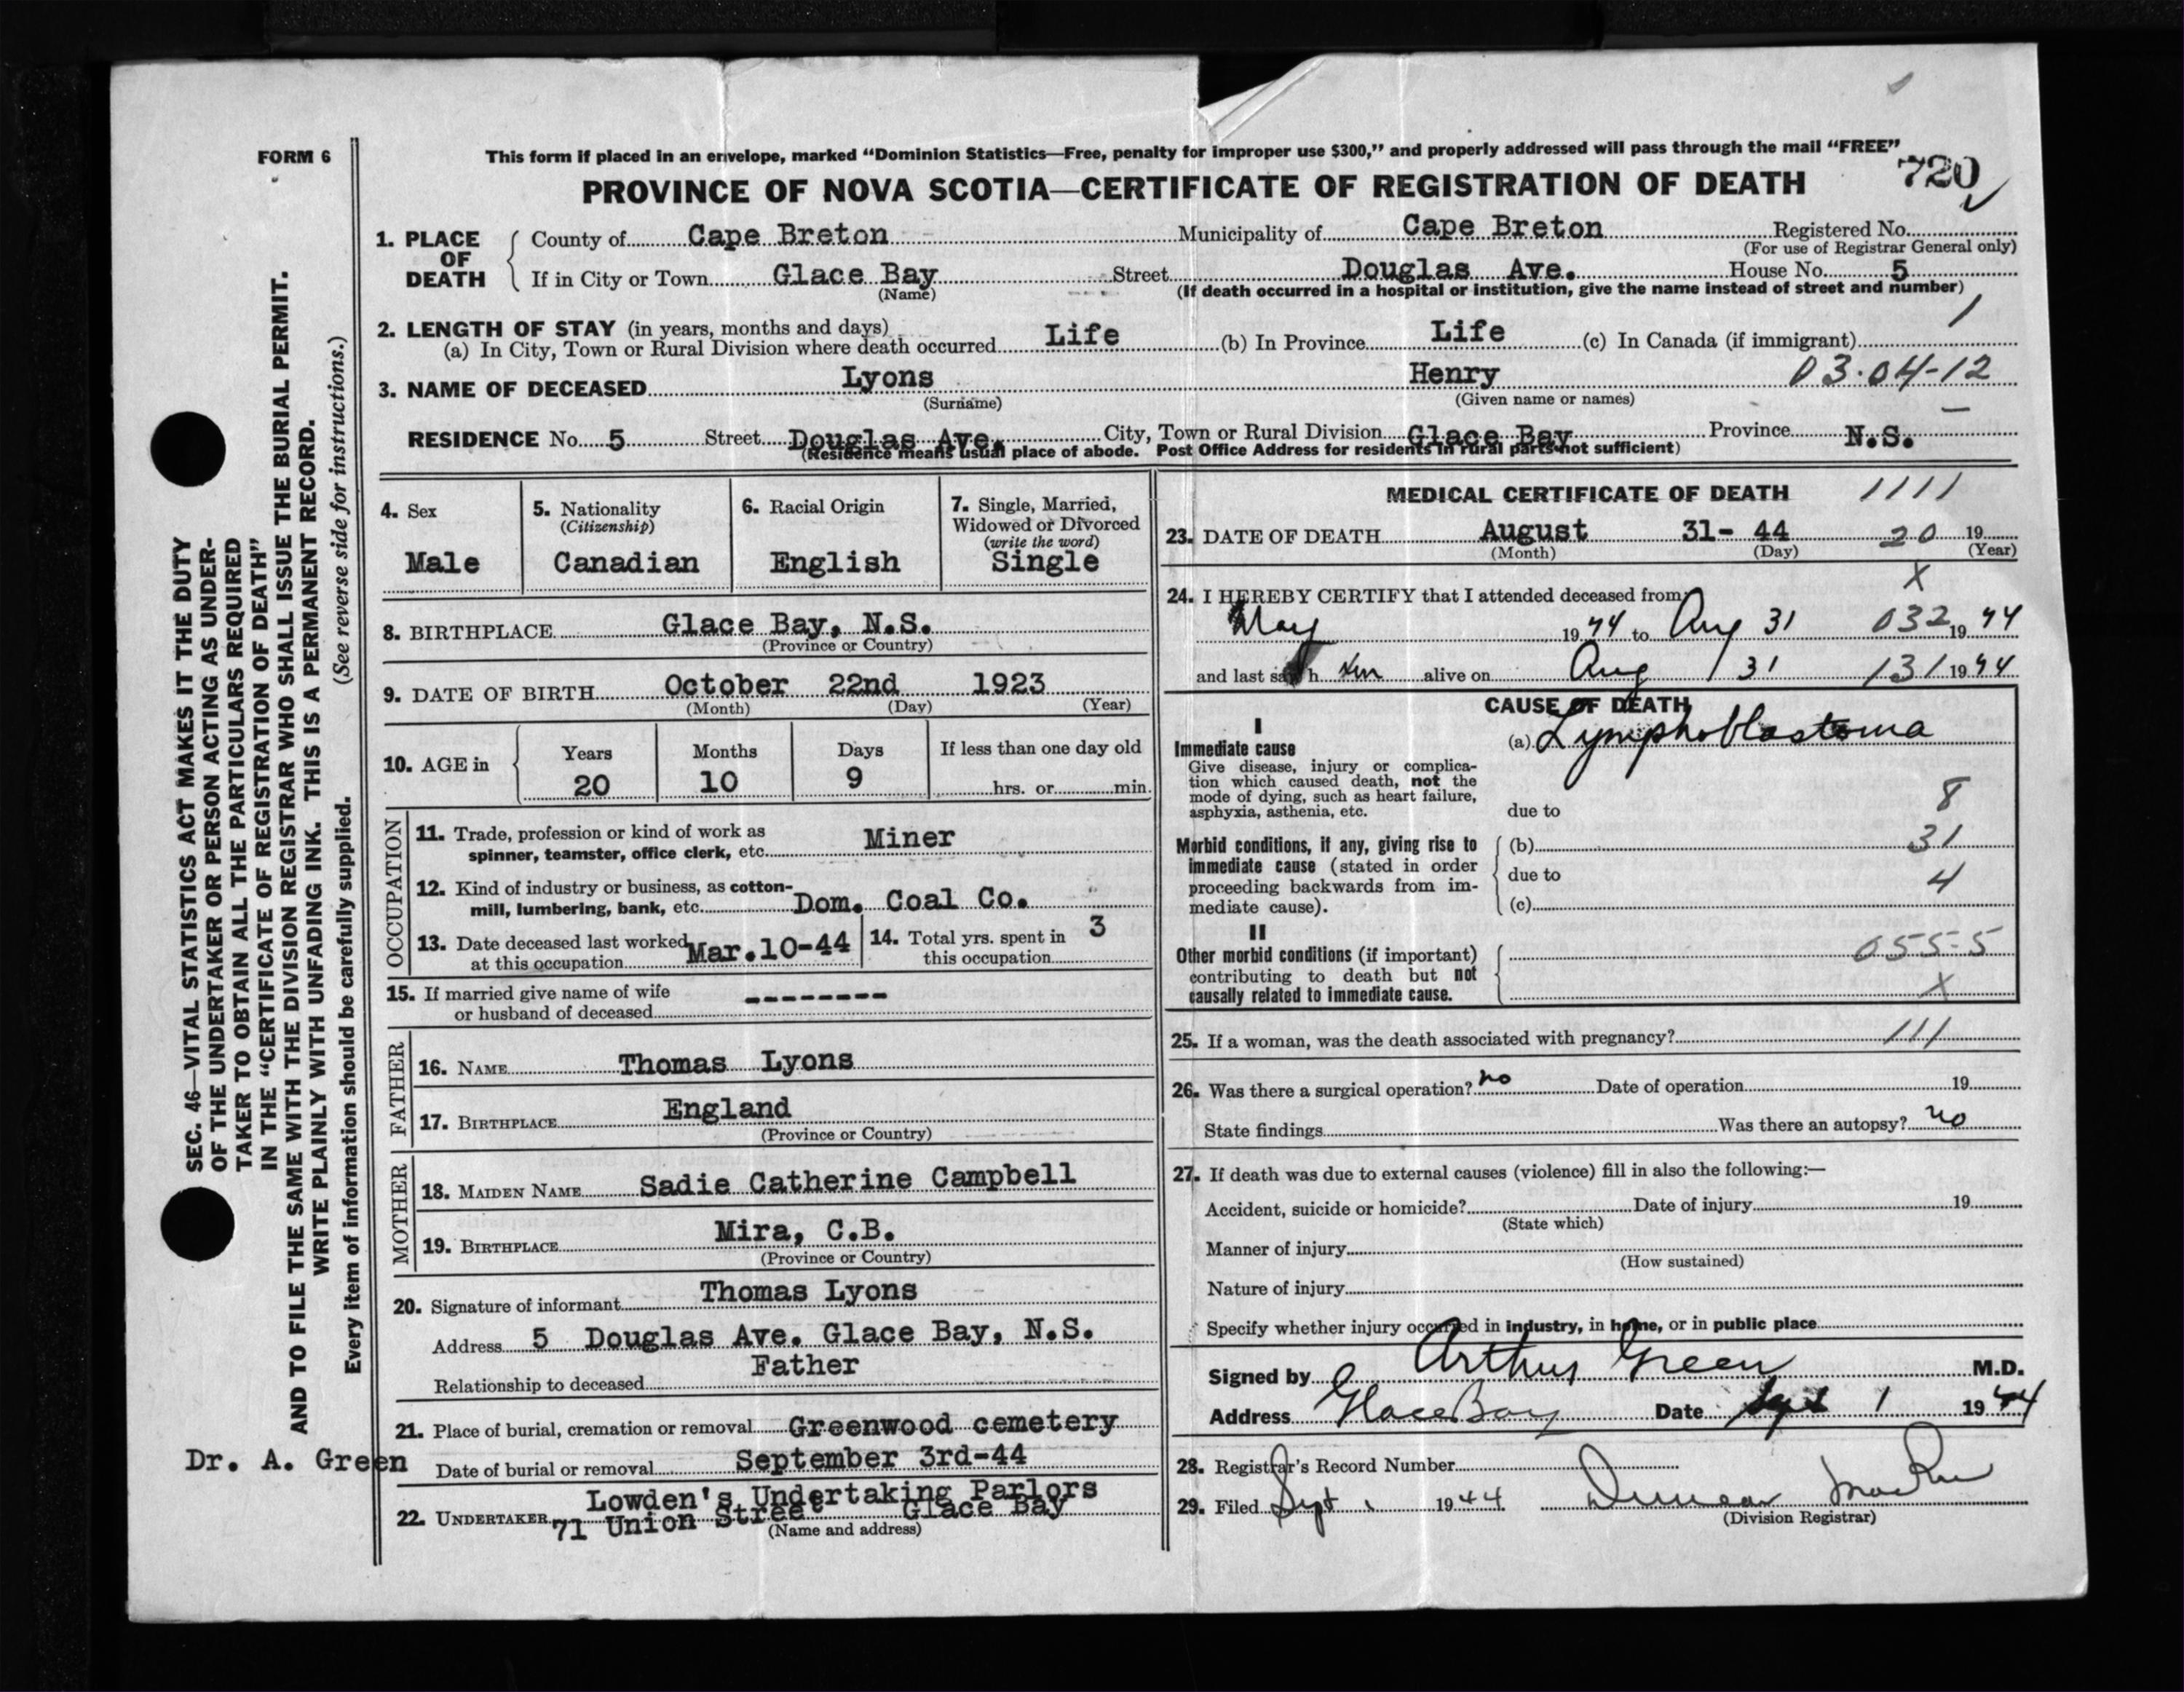 FORM 6
This form if placed in an envelope, marked “Dominion Statistics—Free, penalty for improper use $300,” and properly addressed will pass through the mail “FREE”
PROVINCE OF NOVA SCOTIA—CERTIFICATE OF REGISTRATION OF DEATH
720
1. PLACE OF DEATH
County of Cape Breton Municipality of Cape Breton Registered No.
(For use of Registrar General only)
If in City or Town Glace Bay Street Douglas Ave. House No. 5
(Name) (If death occurred in a hospital or institution, give the name instead of street and number)
1
2. LENGTH OF STAY (in years, months and days)
(a) In City, Town or Rural Division where death occurred Life (b) In Province Life (c) In Canada (if immigrant)
3. NAME OF DECEASED Lyons Henry 03.04-12
(Surname) (Given name or names)
RESIDENCE No. 5 Street Douglas Ave. City, Town or Rural Division Glace Bay Province N.S.
(Residence means usual place of abode. Post Office Address for residents in rural parts not sufficient)
4. Sex
Male
5. Nationality
(Citizenship)
Canadian
6. Racial Origin
English
7. Single, Married,
Widowed or Divorced
(write the word)
Single
8. BIRTHPLACE Glace Bay, N.S.
(Province or Country)
9. DATE OF BIRTH October 22nd 1923
(Month) (Day) (Year)
10. AGE in Years Months Days If less than one day old
20 10 9 hrs. or min.
OCCUPATION
11. Trade, profession or kind of work as
spinner, teamster, office clerk, etc. Miner
12. Kind of industry or business, as cotton-
mill, lumbering, bank, etc. Dom. Coal Co.
13. Date deceased last worked
at this occupation Mar.10-44
14. Total yrs. spent in
this occupation 3
15. If married give name of wife
or husband of deceased --------
FATHER
16. NAME Thomas Lyons
17. BIRTHPLACE England
(Province or Country)
MOTHER
18. MAIDEN NAME Sadie Catherine Campbell
19. BIRTHPLACE Mira, C.B.
(Province or Country)
20. Signature of informant Thomas Lyons
Address 5 Douglas Ave. Glace Bay, N.S.
Relationship to deceased Father
21. Place of burial, cremation or removal Greenwood cemetery
Date of burial or removal September 3rd-44
22. UNDERTAKER Lowden's Undertaking Parlors
71 Union Street Glace Bay
(Name and address)
MEDICAL CERTIFICATE OF DEATH 1111
23. DATE OF DEATH August 31- 44 20 19
(Month) (Day) (Year)
X
24. I HEREBY CERTIFY that I attended deceased from
May 1944 to Aug 31 032 1944
and last saw h im alive on Aug 31 131 1944
CAUSE OF DEATH
I
Immediate cause
Give disease, injury or complica-
tion which caused death, not the
mode of dying, such as heart failure,
asphyxia, asthenia, etc.
(a) Lymphoblastoma
8
due to
Morbid conditions, if any, giving rise to
immediate cause (stated in order
proceeding backwards from im-
mediate cause).
(b) 31
due to 4
(c)
II
Other morbid conditions (if important)
contributing to death but not
causally related to immediate cause.
055-5
X
25. If a woman, was the death associated with pregnancy? 111
26. Was there a surgical operation? no Date of operation 19
State findings Was there an autopsy? no
27. If death was due to external causes (violence) fill in also the following:—
Accident, suicide or homicide? Date of injury 19
(State which)
Manner of injury
(How sustained)
Nature of injury
Specify whether injury occurred in industry, in home, or in public place
Signed by Arthur Green M.D.
Address Glace Bay Date Sept 1 1944
28. Registrar's Record Number
29. Filed Sept 1 1944 Duncan MacRae
(Division Registrar)
SEC. 46—VITAL STATISTICS ACT MAKES IT THE DUTY
OF THE UNDERTAKER OR PERSON ACTING AS UNDER-
TAKER TO OBTAIN ALL THE PARTICULARS REQUIRED
IN THE “CERTIFICATE OF REGISTRATION OF DEATH”
AND TO FILE THE SAME WITH THE DIVISION REGISTRAR WHO SHALL ISSUE THE BURIAL PERMIT.
WRITE PLAINLY WITH UNFADING INK. THIS IS A PERMANENT RECORD.
Every item of information should be carefully supplied. (See reverse side for instructions.)
Dr. A. Green